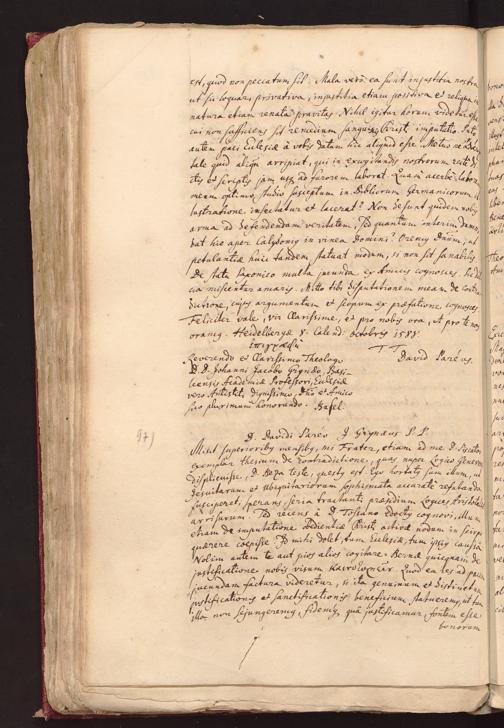 est, quod non peccatum sit. Mala vero ea sunt injustitia nostra
ut sic loquar, privativa, injustitia etiam positiva et reliqua in
natura etiam renata pravitas. Nihil igitur horum videtur esse
cui non sufficiens sit remedium sanguis Christi imputatio.
autem paci Ecclesiæ à vobis datum hic aliquid esse.
tale quid aliqn arripiat, qui in exugitandis nostrorum recte di-
ctis et scriptis jam usq ad furorem laborat. Quam acerbe labo-
rem optimo studio susceptum in Bibliorum Germanicorum il-
lustratione insectatur et lacerat? Non desunt quidem nobis
arma ad defendendam veritatem: sed quantum interim damni
dat hic aper Calydonius in vinea Domini? Oremus Dnum, ut
petulantiæ huic tandem statuat modum, si non sit sanabilis.
De statu multa jucunda ex Amicis cognosces, licet
miscentur amaris. Mitto tibi disputationem meam de contra-
dictione, cujus argumentum et scopum ex præfatione cognosces.
Feliciter vale, vir Clarissime, et pro nobis ora, ut pro te nos
oramus. Heidelbergæ 8. Calend. octobris 1588.
T. T. David Paréus.
Reverendo et Clarissimo Theologo
D. D. Johanni Jacobo Grynæo, Basi-
liensis Academiæ Professori, Ecclesiæ
vero Antistiti dignissimo, Dno et Amico
suo plurimum honorando. Basel.
97)
D. Davidi Paréo J. Grynæus S. P.
Misit superioribus mensibus, mi Frater, etiam ad me D. Piscator
exemplar thesium de Contradictione, quas nuper Logice
disseruisse, D. Beza teste, questus est. Ego hortatus sum illum, ut
Jesuitarum et Ubiquitariorum sophismata accurate refutanda
susciperet, sperans seria tractanti præsidium Logices Aristotelis
arrisurum. Sed recens à D. Tossano edoctus cognovi, illum
etiam de imputatione obedientiæ Christi activæ nodum in scirpo
quærere cœpisse. Id mihi dolet, tum Ecclesiæ, tum ipsius causa.
Nolim autem te aut pios alios cogitare, Bernæ quicquam de
justificatione nobis visum Quod ea res ad pacem
facundam factura videretur, si ita genuinum et distinctum
justificationis et sanctificationis beneficium statueremus, ut tamen
illa non sejungeremus, fidemq, quâ justificamur, fontem esse
bonorum